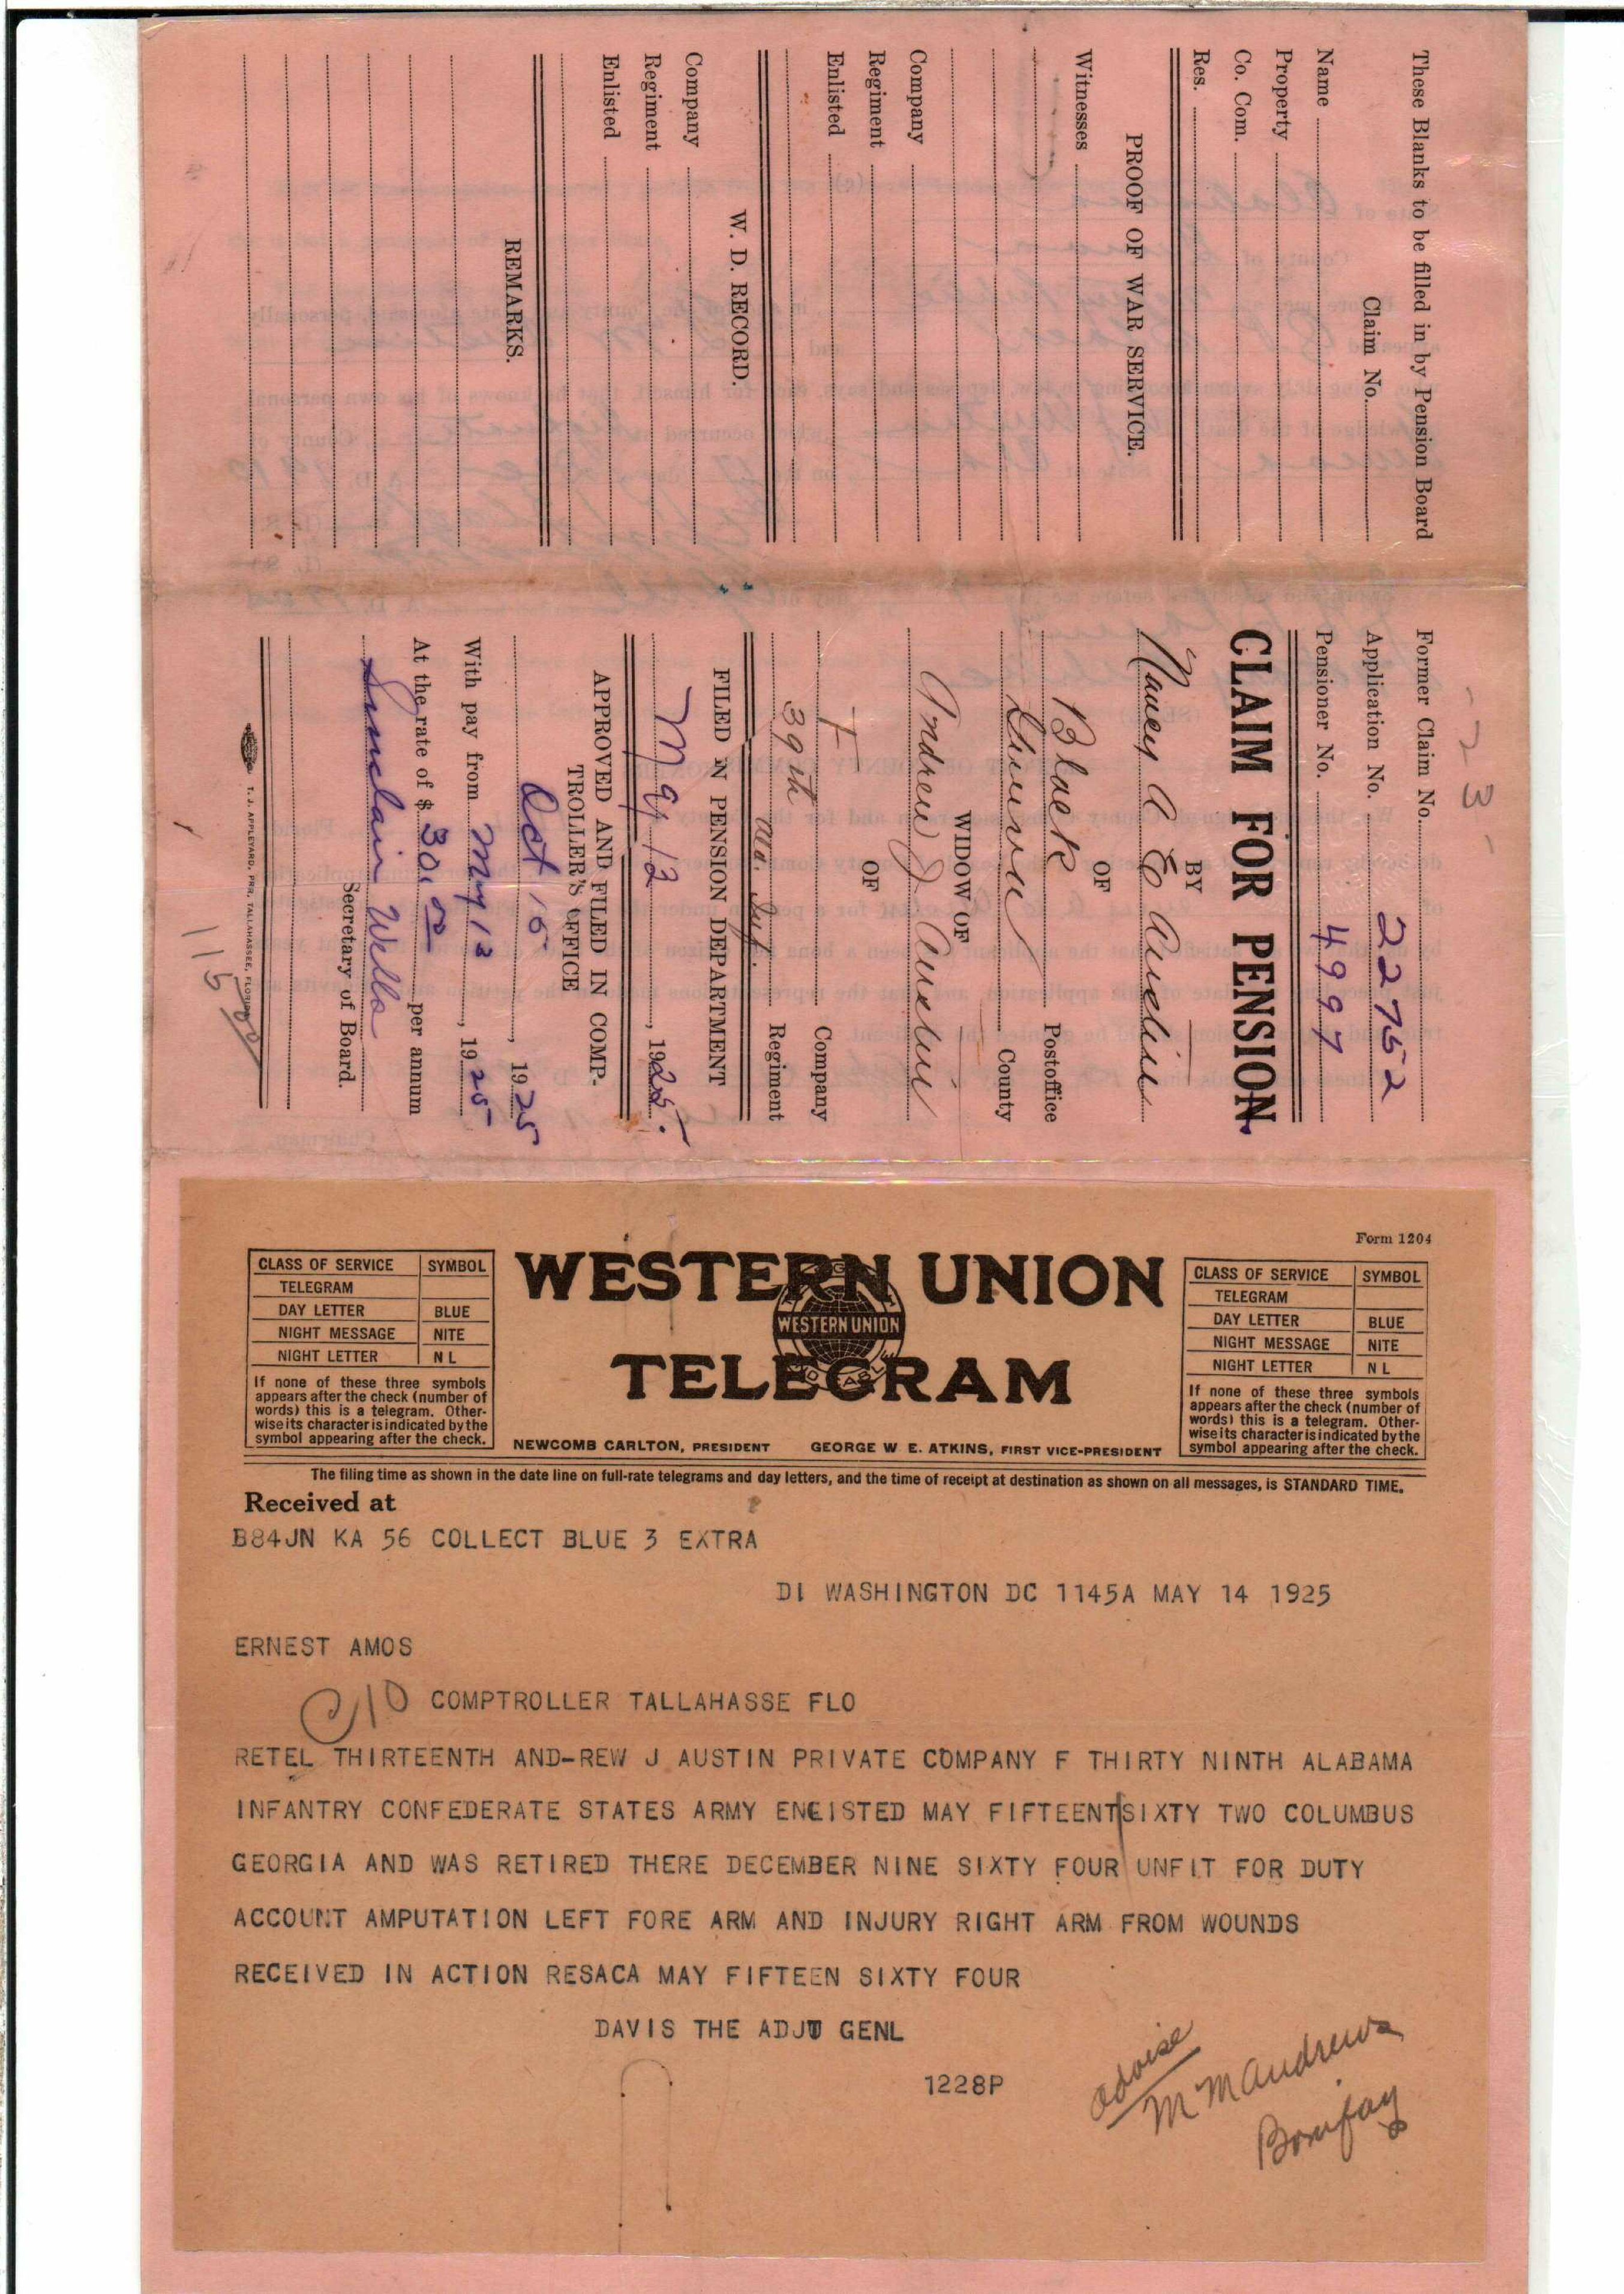 These Blanks to be filled in by Pension Board
Claim No.
Name
Property
Co. Com.
Res.
PROOF OF WAR SERVICE.
Witnesses
Company
Regiment
Enlisted
W. D. RECORD.
Company
Regiment
Enlisted
REMARKS.
- 23 -
Former Claim No.
Application No. 22752
Pensioner No. 4997
CLAIM FOR PENSION
BY
Nancy A E Austin
OF
Black Postoffice
County
WIDOW OF
Andrew J Austin
OF
F Company
39th Ala. Inf. Regiment
FILED IN PENSION DEPARTMENT
My 13, 1925.
APPROVED AND FILED IN COMP-
TROLLER'S OFFICE
Oct 15, 1925
With pay from My 13, 1925
At the rate of $ 30.00 per annum
Sinclair Wells
Secretary of Board.
T. J. APPLEYARD, PRR. TALLAHASSEE, FLORIDA
115
Form 1204
CLASS OF SERVICE SYMBOL
TELEGRAM
DAY LETTER BLUE
NIGHT MESSAGE NITE
NIGHT LETTER N L
If none of these three symbols
appears after the check (number of
words) this is a telegram. Other-
wise its character is indicated by the
symbol appearing after the check.
WESTERN UNION
WESTERN UNION
TELEGRAM
NEWCOMB CARLTON, PRESIDENT GEORGE W. E. ATKINS, FIRST VICE-PRESIDENT
CLASS OF SERVICE SYMBOL
TELEGRAM
DAY LETTER BLUE
NIGHT MESSAGE NITE
NIGHT LETTER N L
If none of these three symbols
appears after the check (number of
words) this is a telegram. Other-
wise its character is indicated by the
symbol appearing after the check.
The filing time as shown in the date line on full-rate telegrams and day letters, and the time of receipt at destination as shown on all messages, is STANDARD TIME.
Received at
B84JN KA 56 COLLECT BLUE 3 EXTRA
DI WASHINGTON DC 1145A MAY 14 1925
ERNEST AMOS
COMPTROLLER TALLAHASSE FLO
RETEL THIRTEENTH AND-REW J AUSTIN PRIVATE COMPANY F THIRTY NINTH ALABAMA
INFANTRY CONFEDERATE STATES ARMY ENLISTED MAY FIFTEENT SIXTY TWO COLUMBUS
GEORGIA AND WAS RETIRED THERE DECEMBER NINE SIXTY FOUR UNFIT FOR DUTY
ACCOUNT AMPUTATION LEFT FORE ARM AND INJURY RIGHT ARM FROM WOUNDS
RECEIVED IN ACTION RESACA MAY FIFTEEN SIXTY FOUR
DAVIS THE ADJT GENL
1228P
advise
M M Andrews
Bonifay